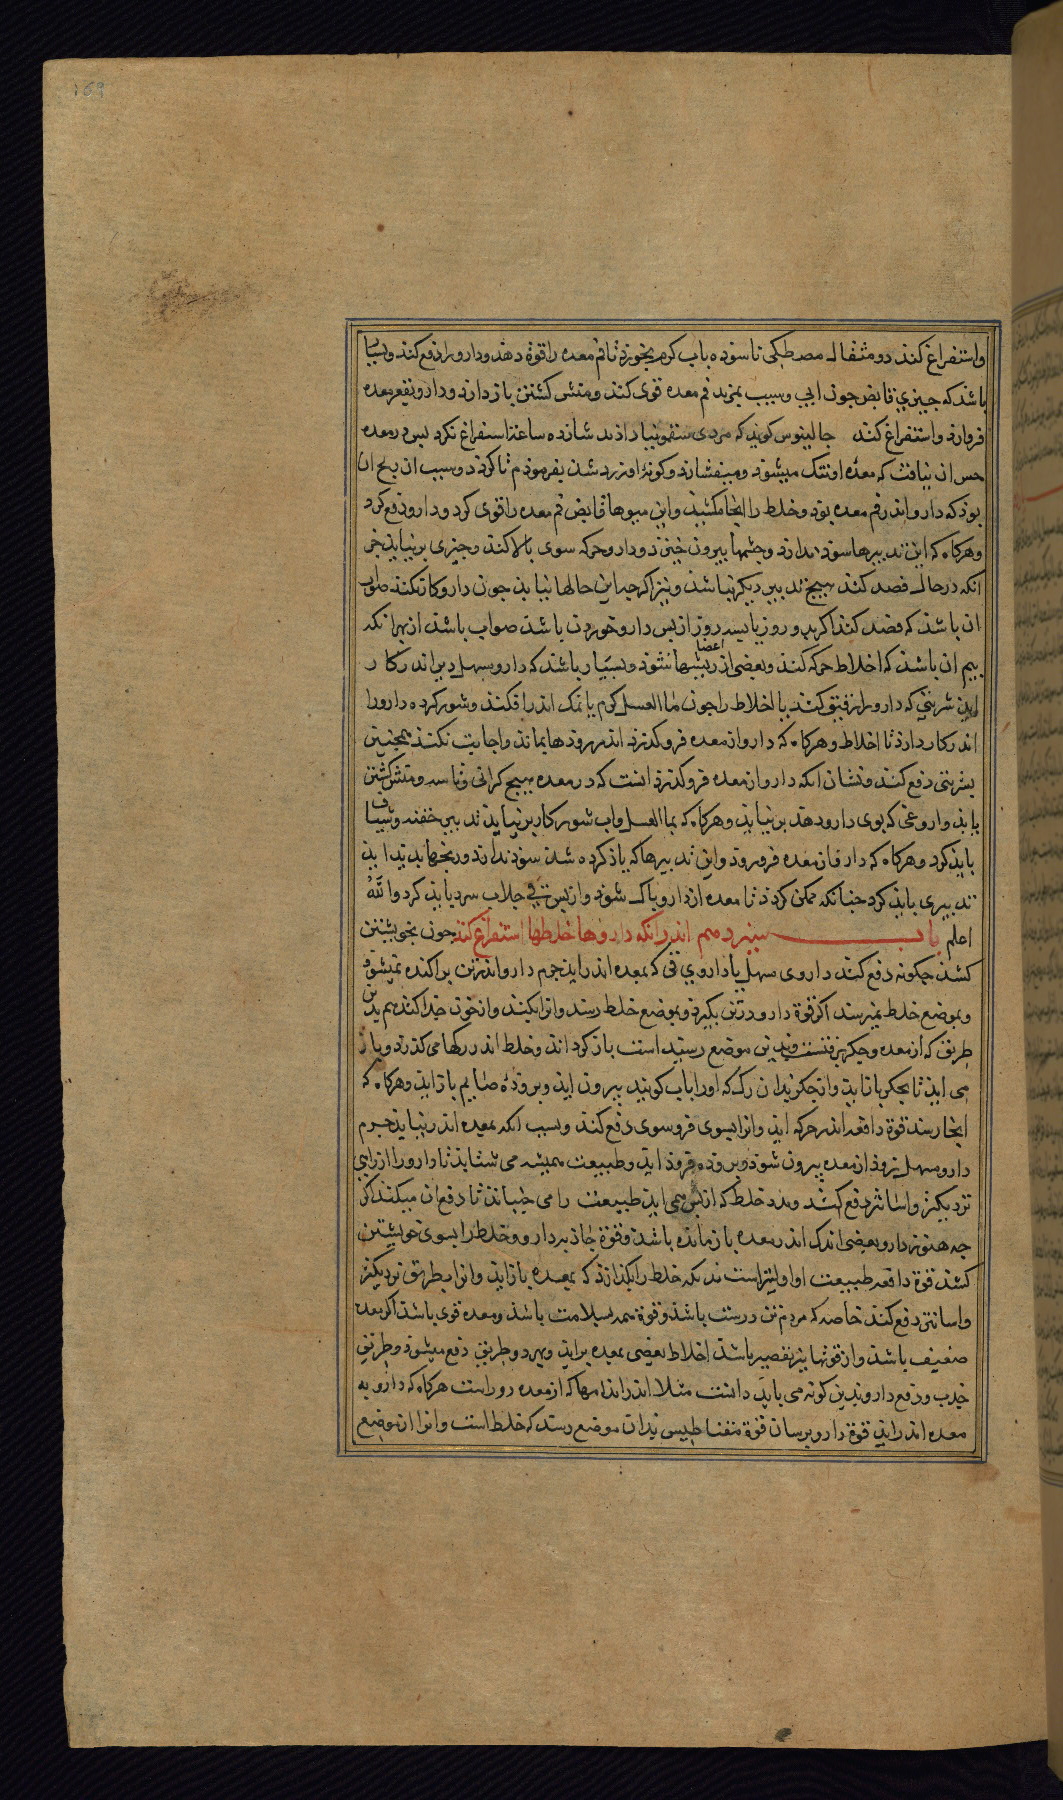 169
واستفراغ کند دو مثقال مصطکی ناسوده باب کرم بخورد تا فم معده را قوة دهد و دارو را دفع کند و بسیار
باشد که جیزی قابض جون ابی و سیب بمزید فم معده قوی کند و منش کشتن باز دارد و دارو بقعر معده
فروارد واستفراغ کند جالینوس کوید که مردی سقمونیا دادند شانزده ساعت استفراغ نکرد بس در معده
حس ان نیافت که معدۀ او تنک میشود و میفشارد و کونۀ او زرد شد بفرمودم تا کرد و سبب ان رنج ان
بود که دارو اندر فم معده بود و خلط را انجا میکشید و این میوها قابض فم معده را قوی کرد و دارو دفع کرد
وهرکاه که این تدبیرها سود ندارد و جشمها بیرون خیزد و دارو حرکه سوی بالا کند و جیزی برنیاید جز
انکه درحال فصد کنند هیج تدبیر دیکر نباشد و نیز اکرجه این حالها نیاید جون دارو کار نکند صواب
ان باشد که فصد کنند اکر بدو روز یا بسه روز از بس دارو خوردن باشد صواب باشد از بهر انکه
بیم ان باشد که اخلاط حرکه کند و بعضی از اعضا ریشها شود و بسیار باشد که دارو مسهل دیر اندر کار
اید شربتی که دارو را رقیق کند با اخلاط را جون ما العسل کرم یا نمک اندر افکند و شور کرده دارو را
اندر کار دارد تا اخلاط وهرکاه که دارو از معده فرو کذرد اندر رودها بماند و اجابت نکند همجنین
بشربتی دفع کند و نشان انکه دارو از معده فرو کذرد انست که در معده هیج کرانی و تاسه و منش کشتن
یابد و اروغی که بوی دارو دهد برنیاید وهرکاه که بما العسل و اب شور کار برنیاید تدبیر حقنه و شیاف
باید کرد وهرکاه که دارو از معده فرو رود و این تدبیرها که یاذ کرده شد سود ندارد و رنجها بدید اید
تدبیری باید کرد جنانکه ممکن کردد تا معده از دارو پاک شود و از پس قی جلاب سرد باید کرد والله
اعلم باب سیزدهم اندر انکه داروها خلطها استفراغ کند جون بخویشتن
کشد جکونه دفع کند داروی مسهل یا داروی قی که بمعده اندر اید جرم دارو اندر تن براکنده نمیشود
و بموضع خلط نمیرسد اکر قوة دارو در تن بکیرد و بموضع خلط رسد و انرا بکشد و از خون جدا کند هم بدین
طریق که از معده و جکر بدین موضع رسیده است باز کرداند و خلط اندر رکها می کذرد و باز
می اید تا بجکر باز اید و از جکر بدان رک که اورا باب کویند بیرون اید و برودۀ صایم باز اید وهرکاه که
انجا رسد قوة دافعه اندر حرکه اید و انرا بسوی فرو سوی دفع کند و بسبب انکه بمعده اندر نیاید جرم
دارو مسهل زود از معده بیرون شود و بروده فرود اید و طبیعت همیشه می شتابد تا دارو را از راهی
نزدیکتر و اسانتر دفع کند و مدد خلط که از پس می اید طبیعت را می جنباند تا دفع ان میکند اکر
جه هنوز دارو بعضی اندک اندر معده بازمانده باشد و قوة جاذبه دارو و خلط را بسوی خویشتن
کشد قوة دافعه طبیعت او اولیتر است بدانکه خلط را بکذارد که بمعده باز اید و انرا بطریق نزدیکتر
و اسانتر دفع کند خاصه که مردم تن درست باشد و قوة همه بسلامت باشد و معده قوی باشد اکر معده
ضعیف باشد و از قوتها نیز تقصیر باشد اخلاط بعضی بمعده براید و بهر دو طریق دفع میشود و طریق
جذب و دفع دارو بدین کونه می باید دانست مثلا اندر اندامها که از معده دور است هرکاه که دارو به
معده اندر اید قوة دارو برسان قوة مغناطیس بدان موضع رسد که خلط است و انرا از موضع